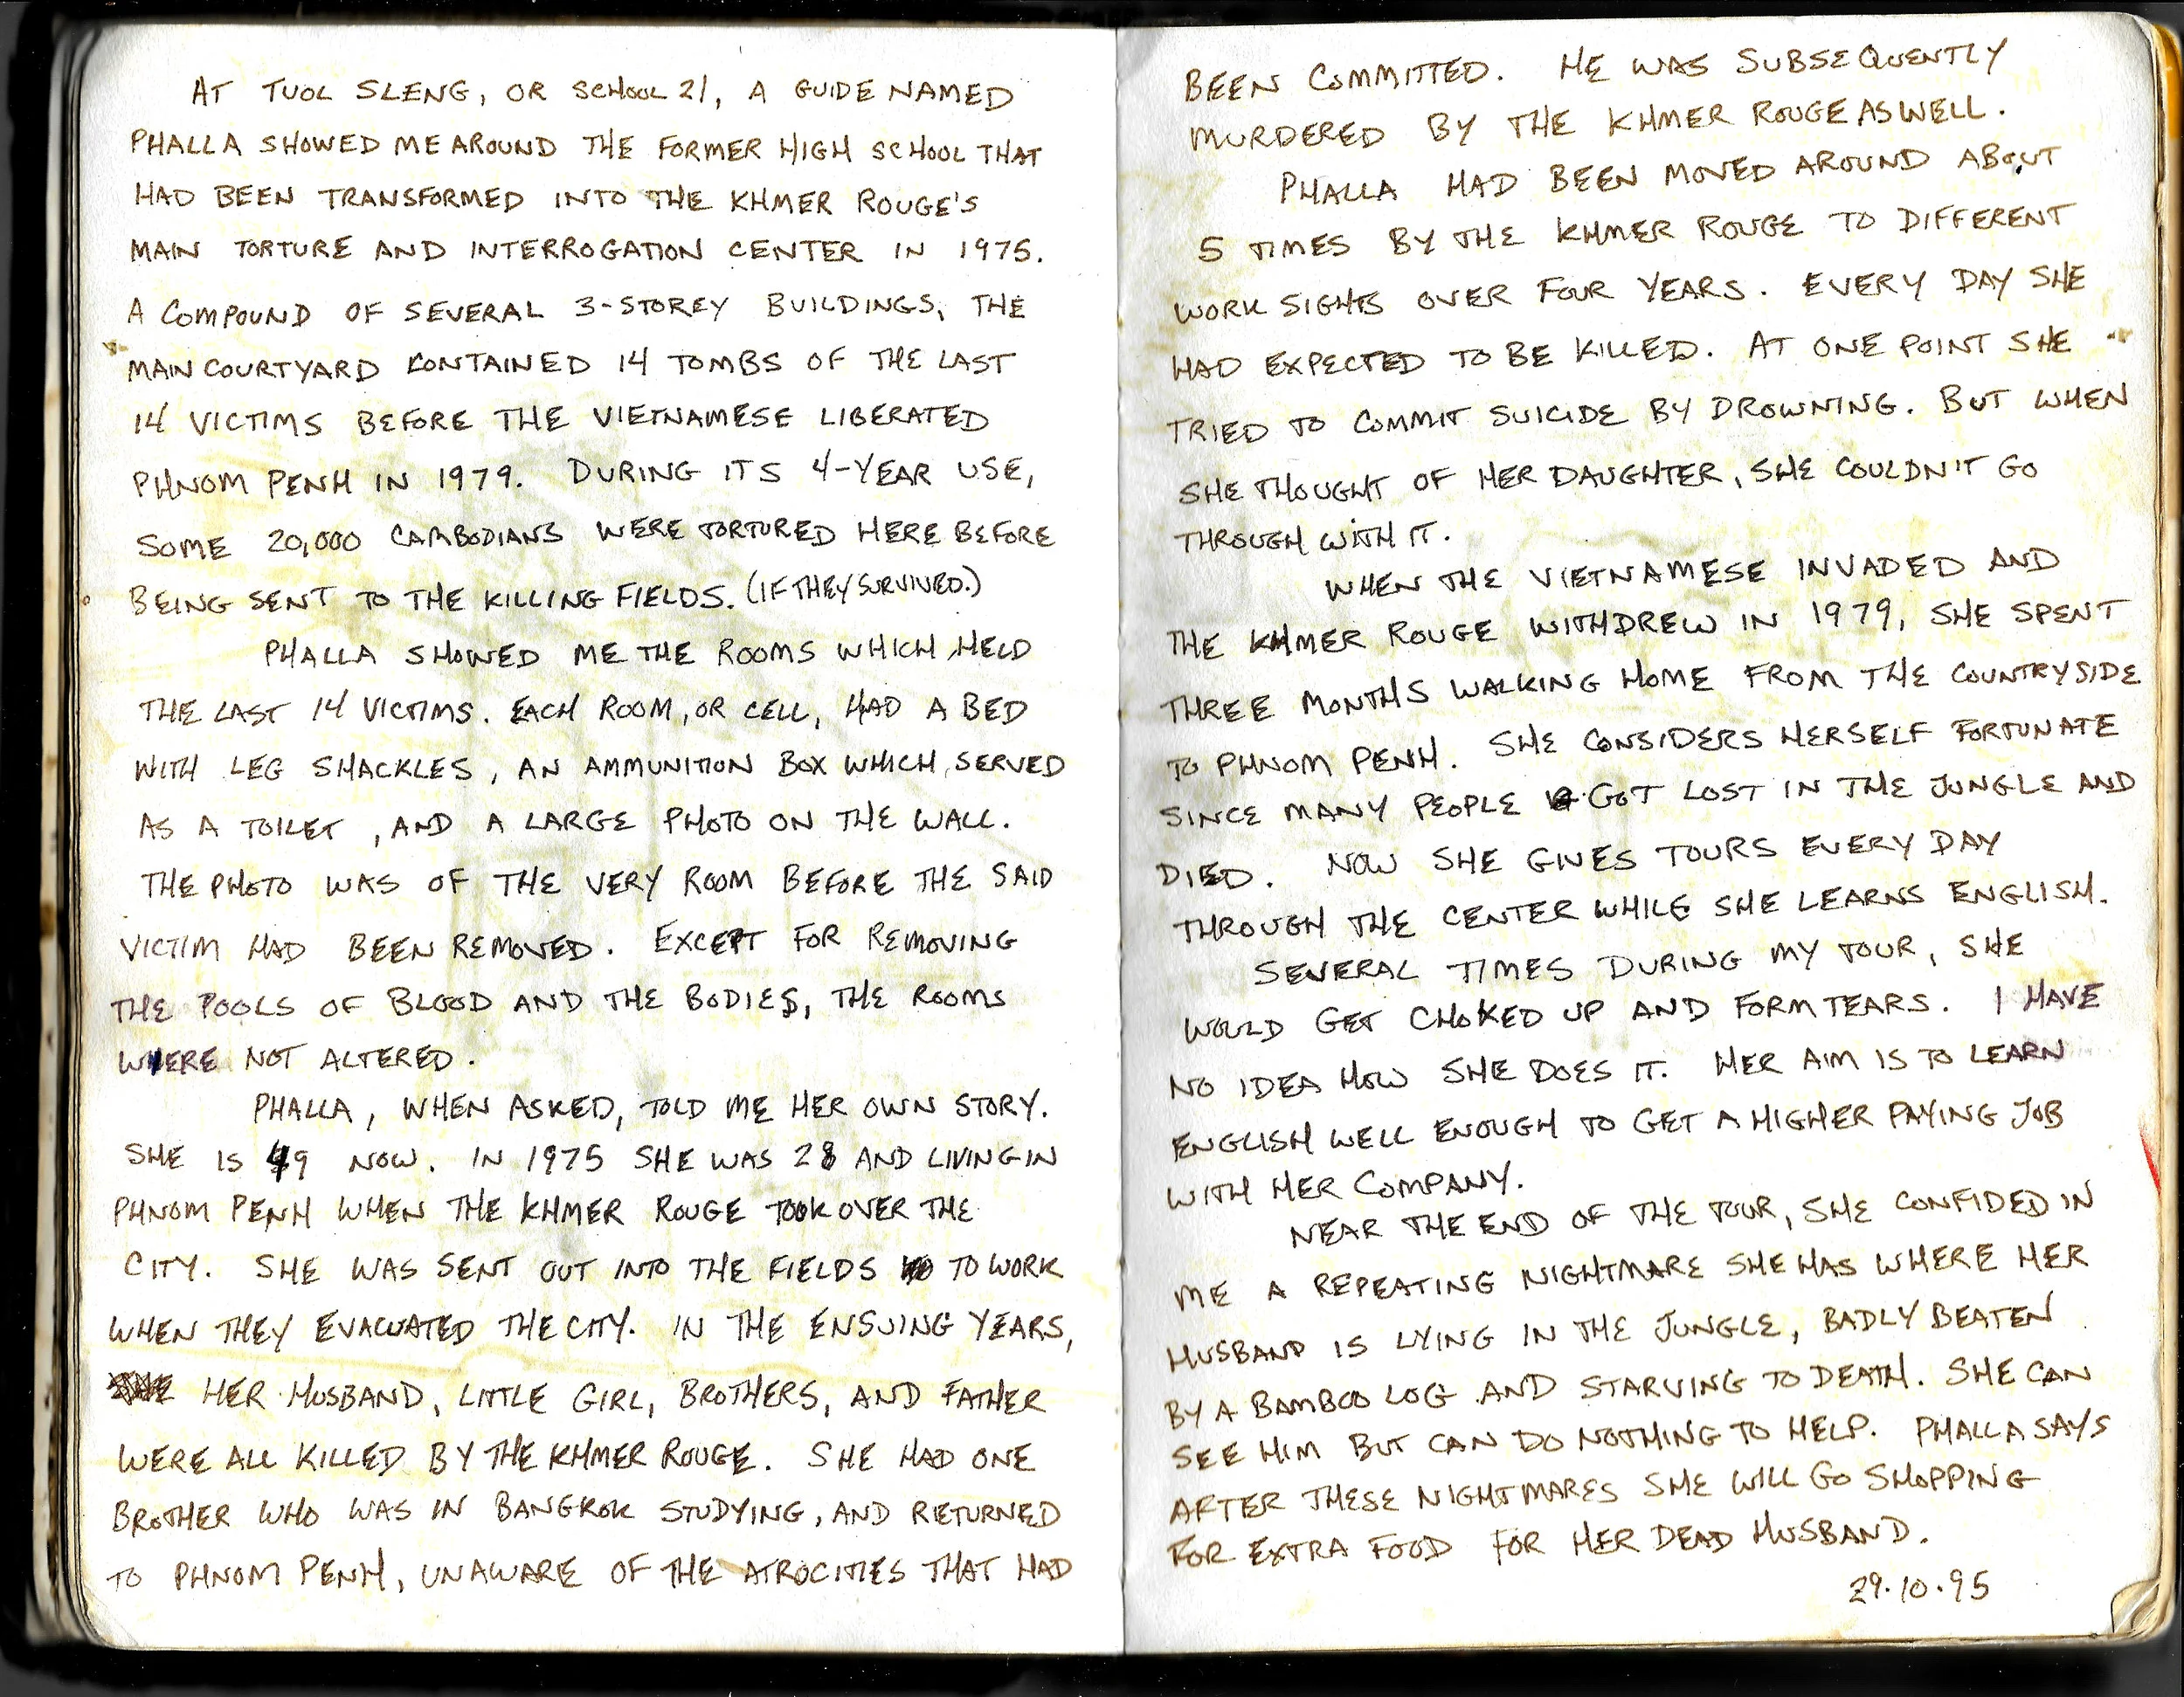 AT TUOL SLENG, OR SCHOOL 21, A GUIDE NAMED
PHALLA SHOWED ME AROUND THE FORMER HIGH SCHOOL THAT
HAD BEEN TRANSFORMED INTO THE KHMER ROUGE'S
MAIN TORTURE AND INTERROGATION CENTER IN 1975.
A COMPOUND OF SEVERAL 3-STOREY BUILDINGS, THE
MAIN COURTYARD CONTAINED 14 TOMBS OF THE LAST
14 VICTIMS BEFORE THE VIETNAMESE LIBERATED
PHNOM PENH IN 1979. DURING ITS 4-YEAR USE,
SOME 20,000 CAMBODIANS WERE TORTURED HERE BEFORE
BEING SENT TO THE KILLING FIELDS. (IF THEY SURVIVED.)
PHALLA SHOWED ME THE ROOMS WHICH HELD
THE LAST 14 VICTIMS. EACH ROOM, OR CELL, HAD A BED
WITH LEG SHACKLES, AN AMMUNITION BOX WHICH SERVED
AS A TOILET, AND A LARGE PHOTO ON THE WALL.
THE PHOTO WAS OF THE VERY ROOM BEFORE THE SAID
VICTIM HAD BEEN REMOVED. EXCEPT FOR REMOVING
THE POOLS OF BLOOD AND THE BODIES, THE ROOMS
WERE NOT ALTERED.
PHALLA, WHEN ASKED, TOLD ME HER OWN STORY.
SHE IS 49 NOW. IN 1975 SHE WAS 28 AND LIVING IN
PHNOM PENH WHEN THE KHMER ROUGE TOOK OVER THE
CITY. SHE WAS SENT OUT INTO THE FIELDS TO WORK
WHEN THEY EVACUATED THE CITY. IN THE ENSUING YEARS,
HER HUSBAND, LITTLE GIRL, BROTHERS, AND FATHER
WERE ALL KILLED BY THE KHMER ROUGE. SHE HAD ONE
BROTHER WHO WAS IN BANGKOK STUDYING, AND RETURNED
TO PHNOM PENH, UNAWARE OF THE ATROCITIES THAT HAD
BEEN COMMITTED. HE WAS SUBSEQUENTLY
MURDERED BY THE KHMER ROUGE AS WELL.
PHALLA HAD BEEN MOVED AROUND ABOUT
5 TIMES BY THE KHMER ROUGE TO DIFFERENT
WORK SIGHTS OVER FOUR YEARS. EVERY DAY SHE
HAD EXPECTED TO BE KILLED. AT ONE POINT SHE
TRIED TO COMMIT SUICIDE BY DROWNING. BUT WHEN
SHE THOUGHT OF HER DAUGHTER, SHE COULDN'T GO
THROUGH WITH IT.
WHEN THE VIETNAMESE INVADED AND
THE KHMER ROUGE WITHDREW IN 1979, SHE SPENT
THREE MONTHS WALKING HOME FROM THE COUNTRYSIDE
TO PHNOM PENH. SHE CONSIDERS HERSELF FORTUNATE
SINCE MANY PEOPLE GOT LOST IN THE JUNGLE AND
DIED. NOW SHE GIVES TOURS EVERY DAY
THROUGH THE CENTER WHILE SHE LEARNS ENGLISH.
SEVERAL TIMES DURING MY TOUR, SHE
WOULD GET CHOKED UP AND FORM TEARS. I HAVE
NO IDEA HOW SHE DOES IT. HER AIM IS TO LEARN
ENGLISH WELL ENOUGH TO GET A HIGHER PAYING JOB
WITH HER COMPANY.
NEAR THE END OF THE TOUR, SHE CONFIDED IN
ME A REPEATING NIGHTMARE SHE HAS WHERE HER
HUSBAND IS LYING IN THE JUNGLE, BADLY BEATEN
BY A BAMBOO LOG AND STARVING TO DEATH. SHE CAN
SEE HIM BUT CAN DO NOTHING TO HELP. PHALLA SAYS
AFTER THESE NIGHTMARES SHE WILL GO SHOPPING
FOR EXTRA FOOD FOR HER DEAD HUSBAND.
29.10.95